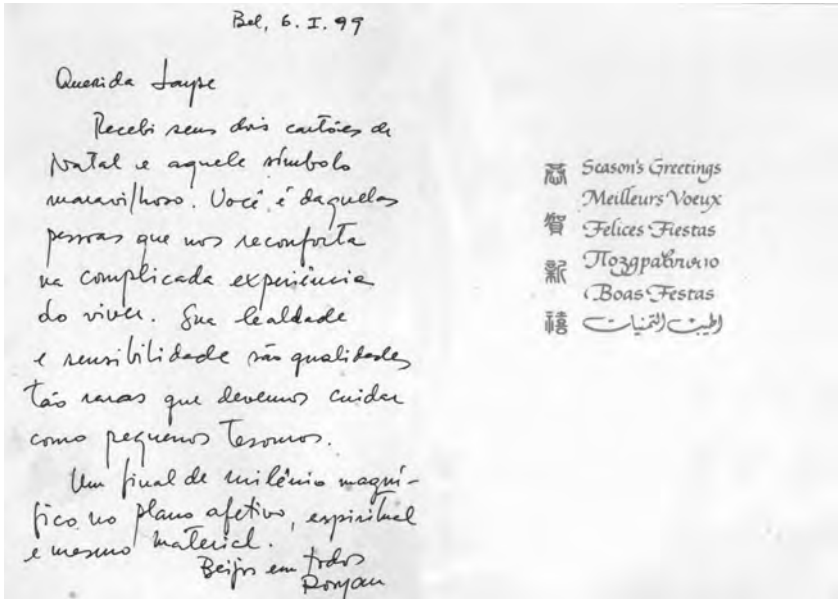 Bel, 6. I. 99
Querida
Recebi seus dois cartões de
Natal e aquele símbolo
maravilhoso. Você é daquelas
pessoas que nos reconforta
na complicada experiência
do viver. Sua lealdade
e sensibilidade são qualidades
tão raras que devemos cuidar
como pequenos tesouros.
Um final de milênio magní-
fico no plano afetivo, espiritual
e mesmo material.
Beijos em todos
恭賀新禧
Season's Greetings
Meilleurs Voeux
Felices Fiestas
Поздравляю
Boas Festas
اطيب التمنيات